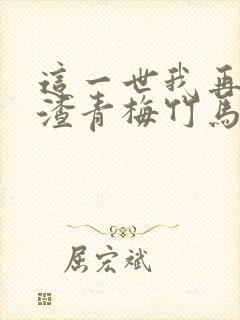 這一世我再
渣青梅竹馬
屈宏斌